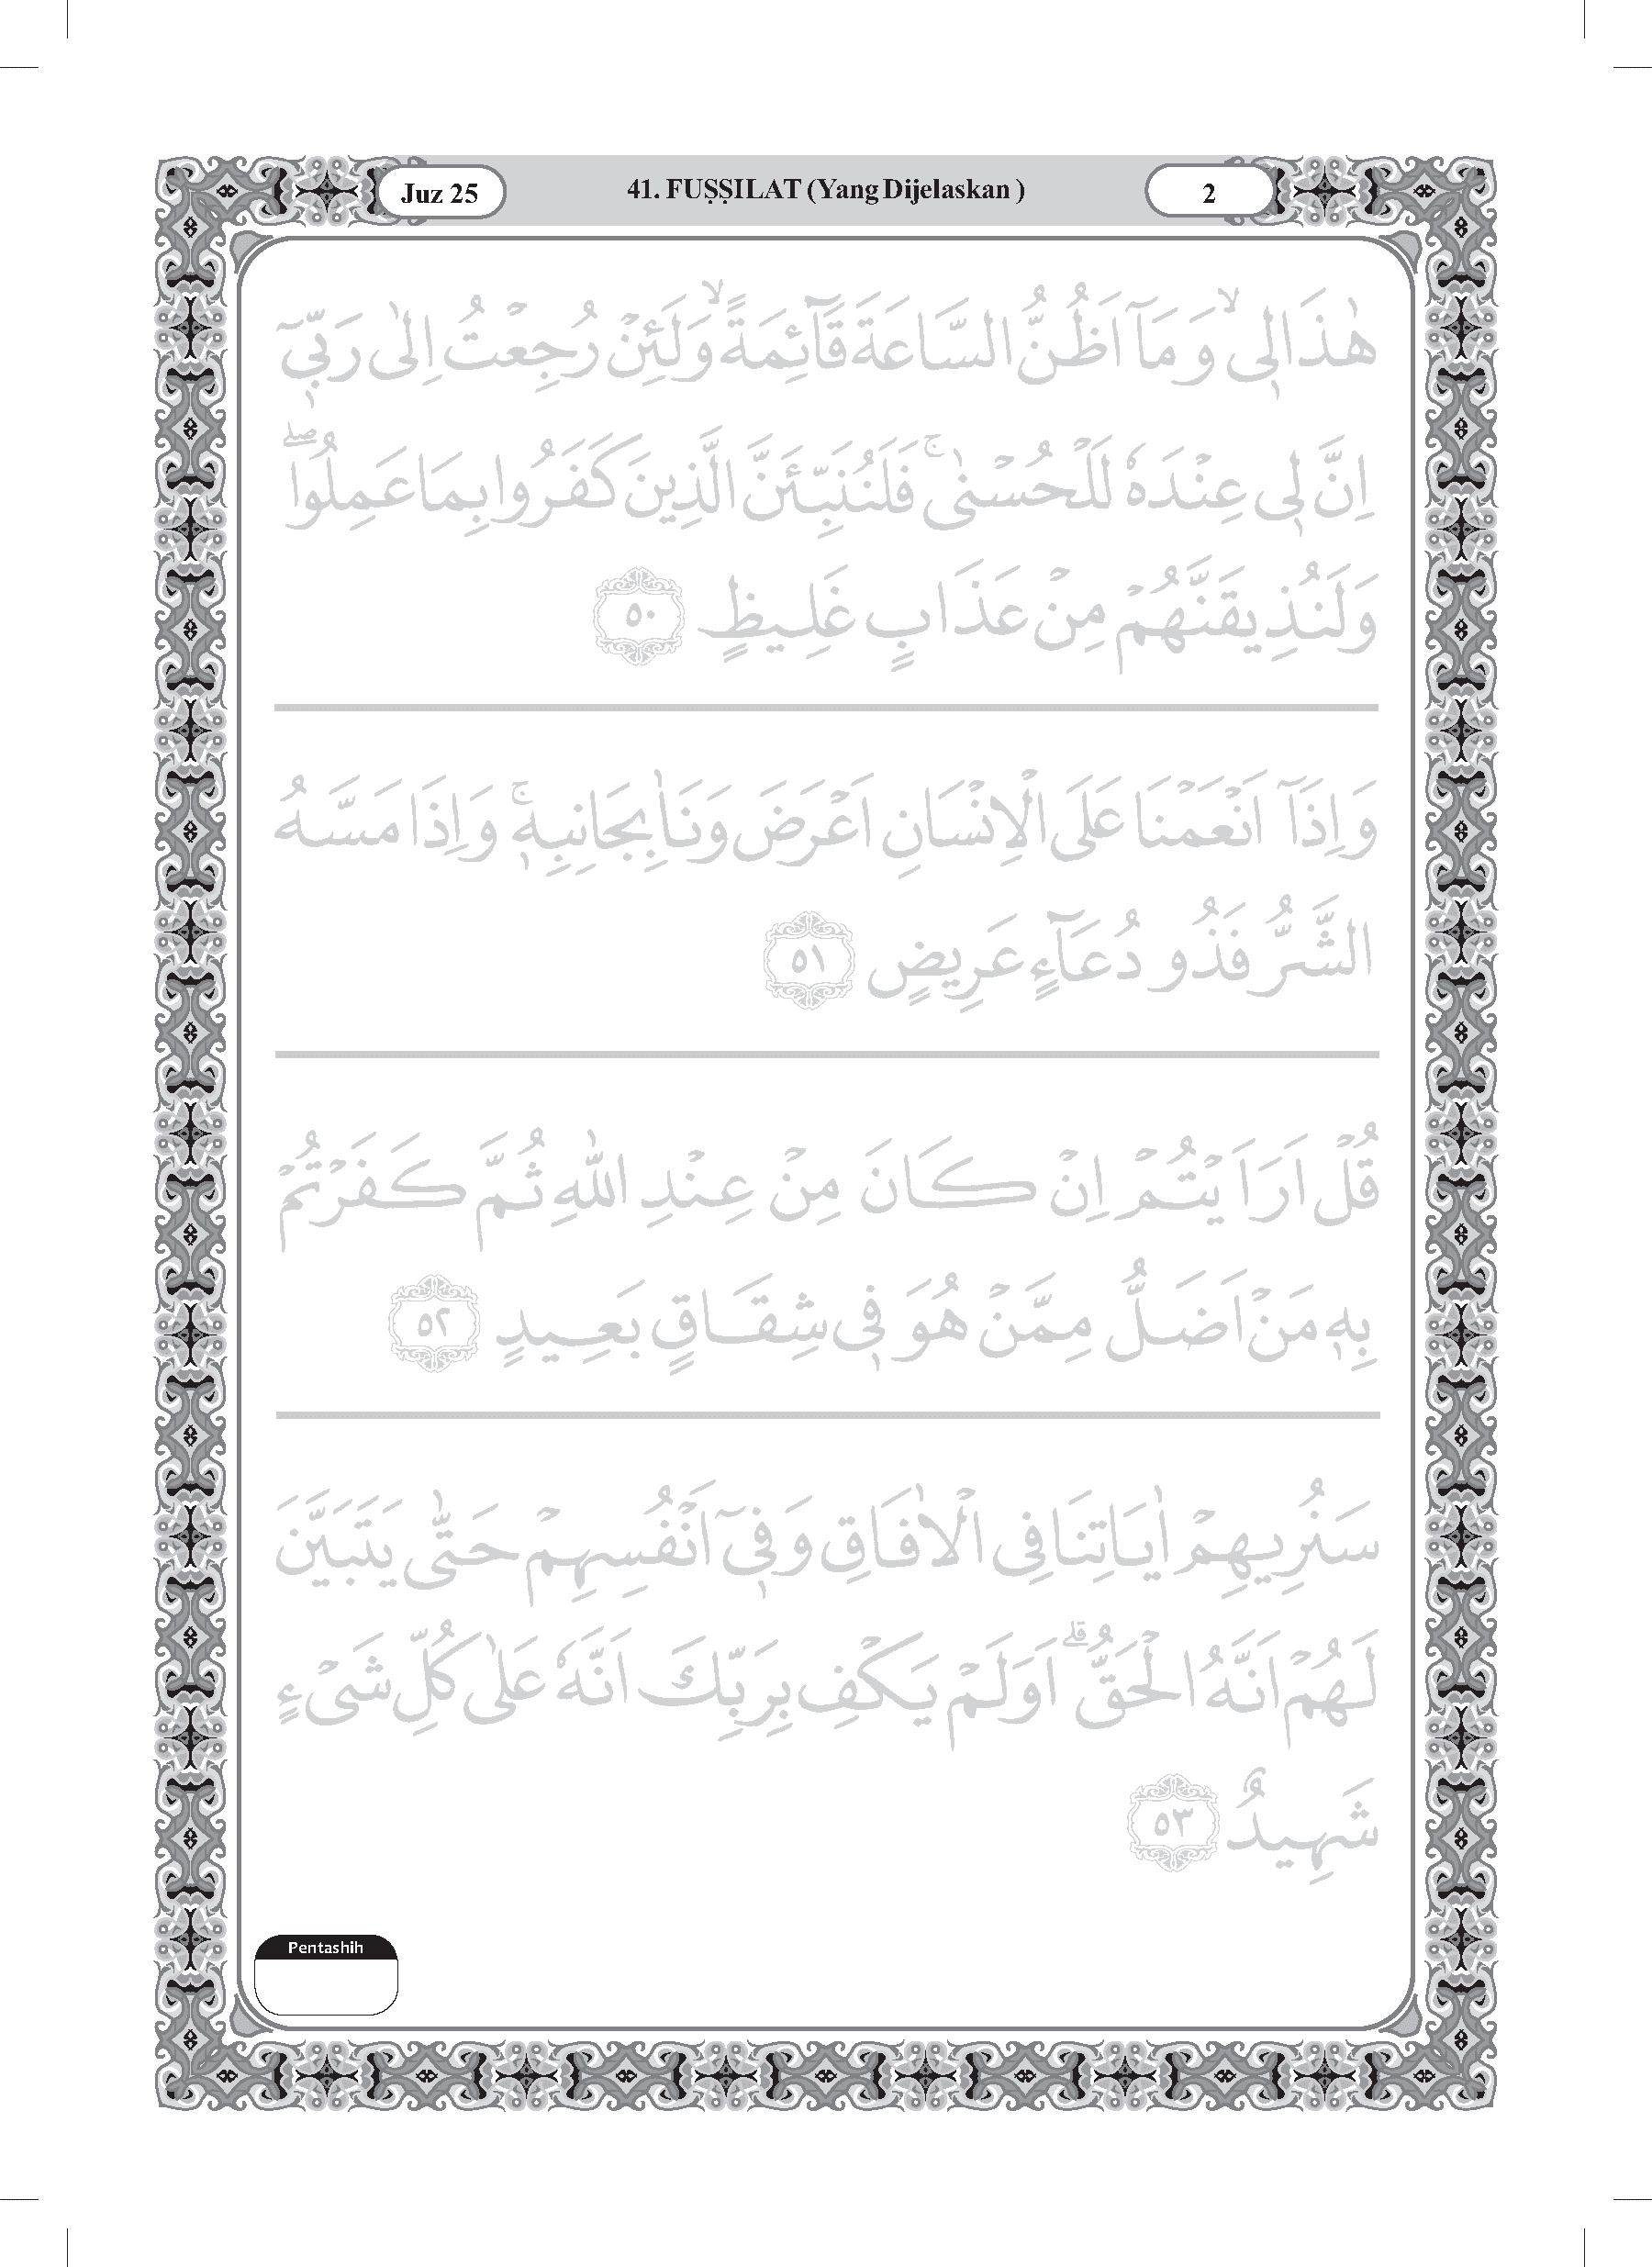 Juz 25 41. FUṢṢILAT (Yang Dijelaskan ) 2
هٰذَا لِيْۙ وَمَآ اَظُنُّ السَّاعَةَ قَآئِمَةًۙ وَّلَئِنْ رُّجِعْتُ اِلٰى رَبِّيْٓ
اِنَّ لِيْ عِنْدَهٗ لَلْحُسْنٰىۚ فَلَنُنَبِّئَنَّ الَّذِيْنَ كَفَرُوْا بِمَا عَمِلُوْاۖ
وَلَنُذِيْقَنَّهُمْ مِّنْ عَذَابٍ غَلِيْظٍ ٥٠
وَاِذَآ اَنْعَمْنَا عَلَى الْاِنْسَانِ اَعْرَضَ وَنَاٰ بِجَانِبِهٖۚ وَاِذَا مَسَّهُ
الشَّرُّ فَذُوْ دُعَآءٍ عَرِيْضٍ ٥١
قُلْ اَرَاَيْتُمْ اِنْ كَانَ مِنْ عِنْدِ اللّٰهِ ثُمَّ كَفَرْتُمْ
بِهٖ مَنْ اَضَلُّ مِمَّنْ هُوَ فِيْ شِقَاقٍ بَعِيْدٍ ٥٢
سَنُرِيْهِمْ اٰيَاتِنَا فِى الْاٰفَاقِ وَفِيْٓ اَنْفُسِهِمْ حَتّٰى يَتَبَيَّنَ
لَهُمْ اَنَّهُ الْحَقُّۗ اَوَلَمْ يَكْفِ بِرَبِّكَ اَنَّهٗ عَلٰى كُلِّ شَيْءٍ
شَهِيْدٌ ٥٣
Pentashih